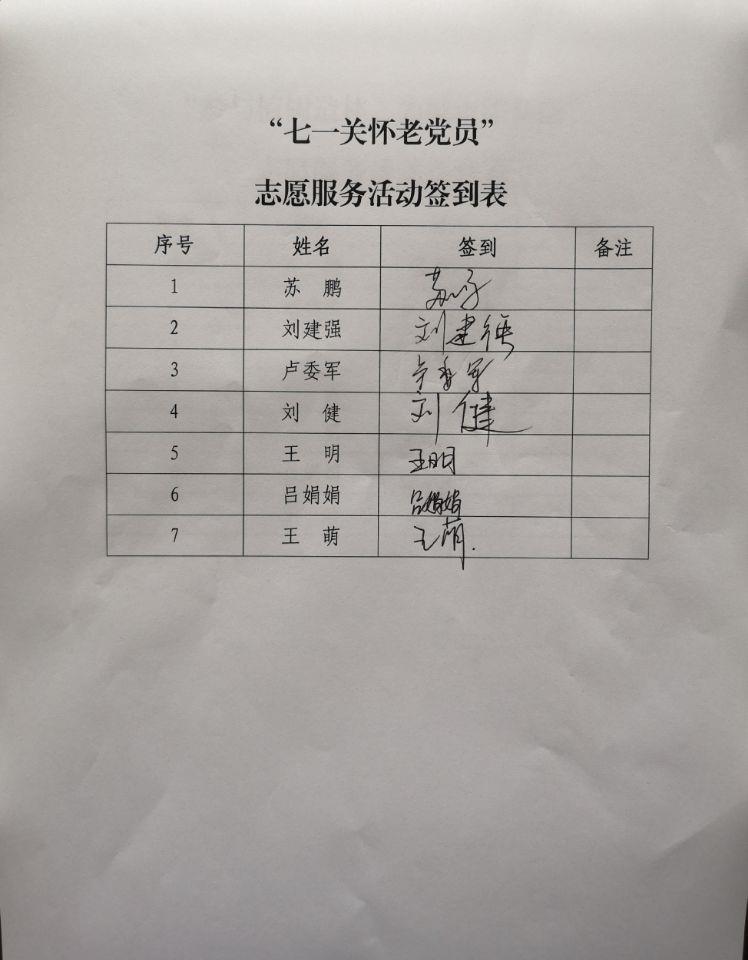 “七一关怀老党员”
志愿服务活动签到表
序号 姓名 签到 备注
1 苏 鹏 苏鹏
2 刘建强 刘建强
3 卢委军 卢委军
4 刘 健 刘健
5 王 明 王明
6 吕娟娟 吕娟娟
7 王 萌 王萌.